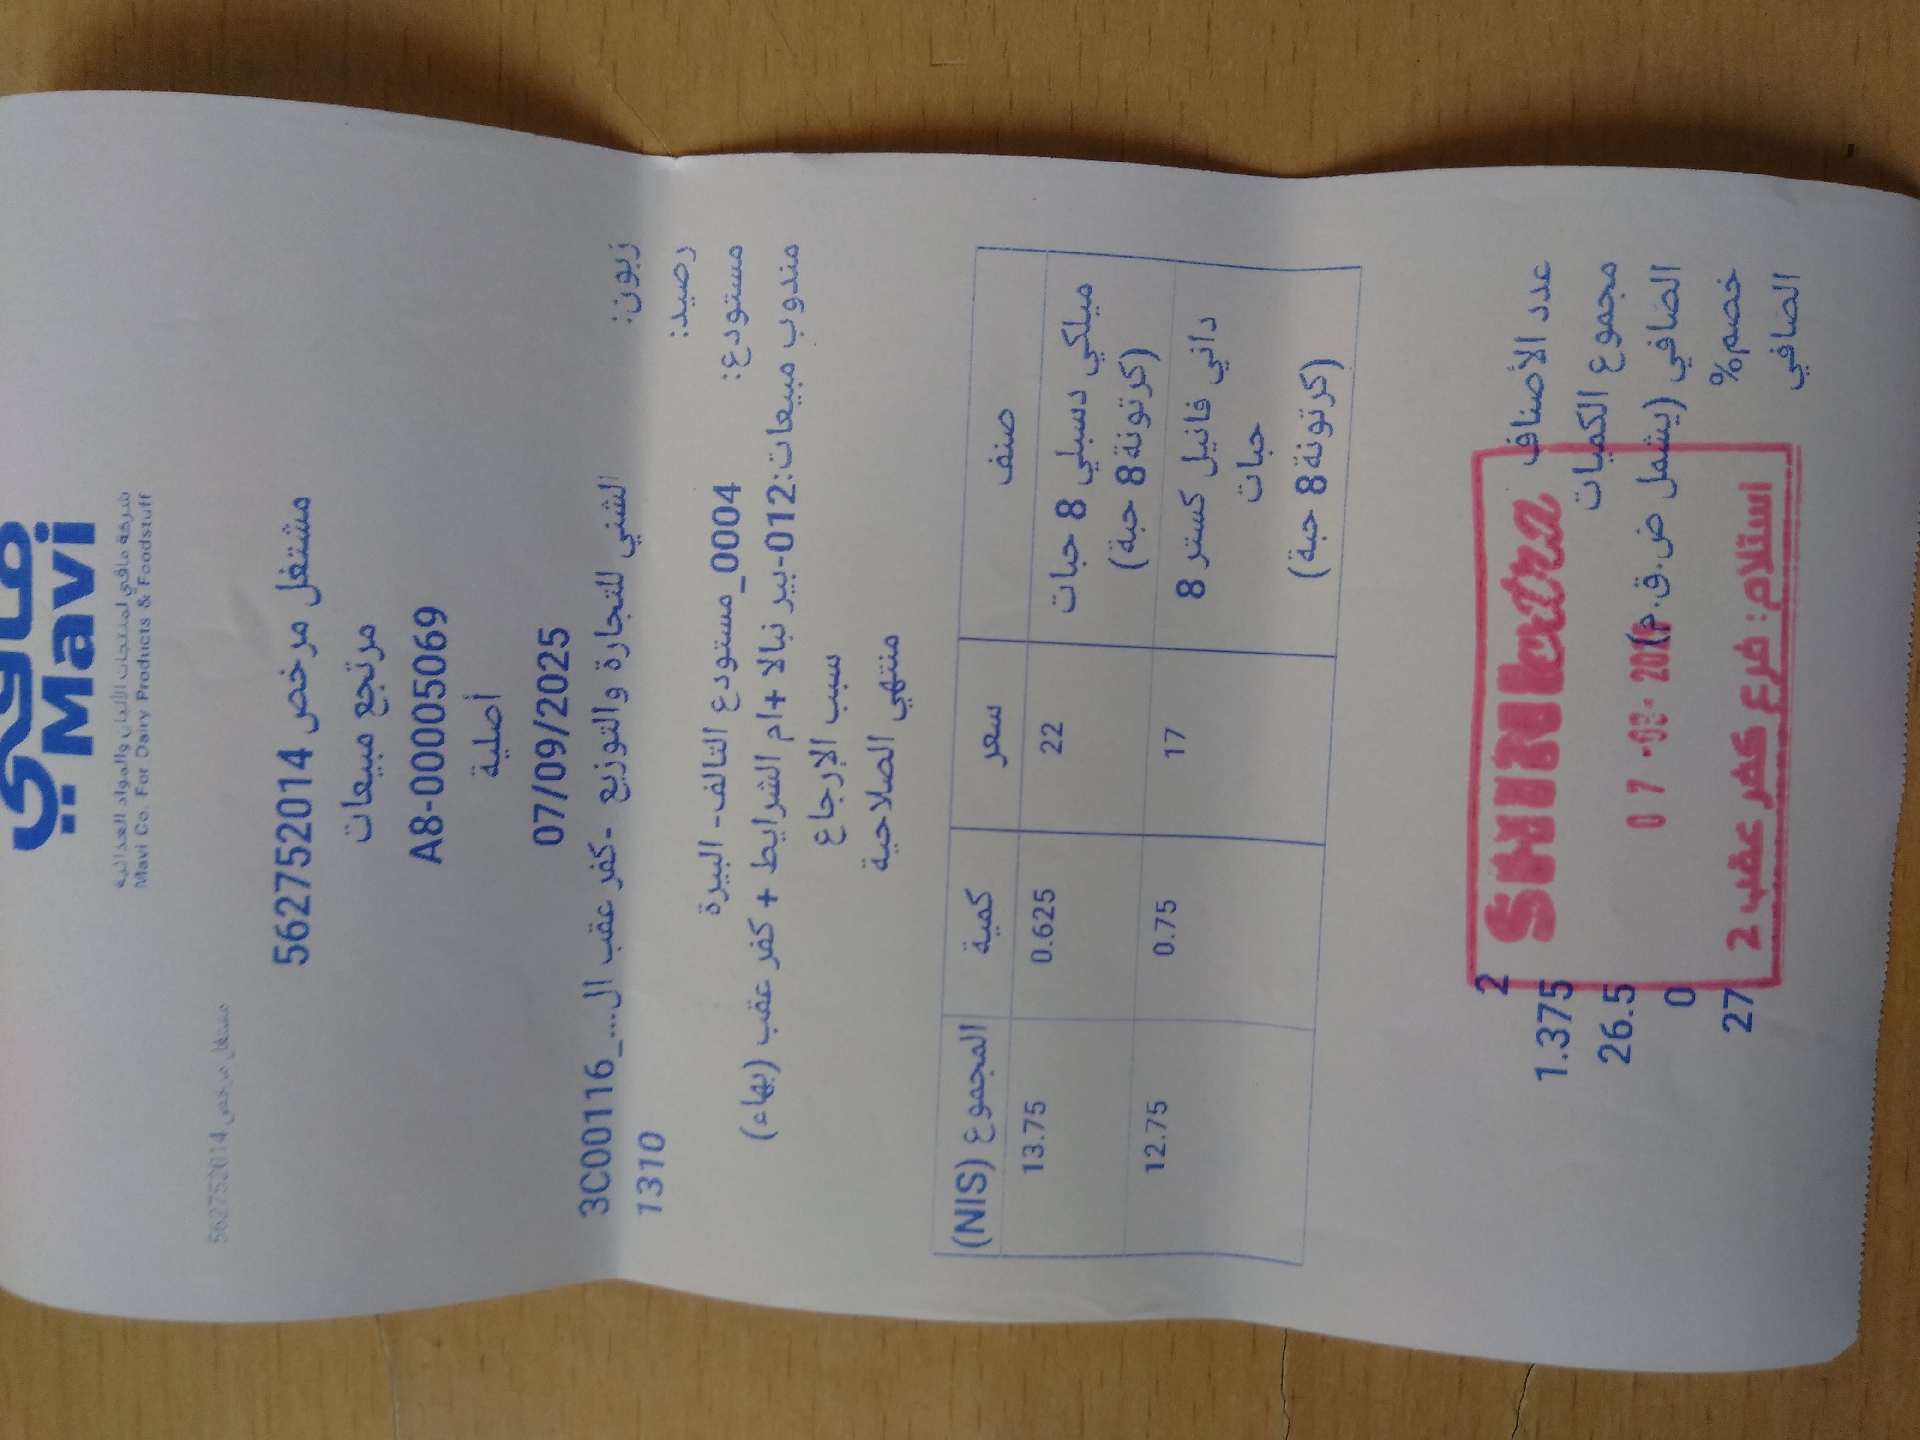 مافي
Mavi
شركة مافي لمنتجات الألبان والمواد الغذائية
Mavi Co. For Dairy Products & Foodstuff
مشتغل مرخص 562752014
مشتغل مرخص 562752014
مرتجع مبيعات
A8-00005069
أصلية
07/09/2025
زبون: الشني للتجارة والتوزيع -كفر عقب ال..._3C00116
رصيد: 1310
مستودع: 0004_مستودع التالف- البيرة
مندوب مبيعات:012-بير نبالا +ام الشرايط + كفر عقب (بهاء)
سبب الارجاع
منتهي الصلاحية
صنف سعر كمية المجموع (NIS)
ميلكي دسبلي 8 حبات 22 0.625 13.75
(كرتونة 8 حبة)
داني فانيل كستر 8 17 0.75 12.75
حبات
(كرتونة 8 حبة)
عدد الأصناف 2
مجموع الكميات 1.375
الصافي (يشمل ض.ق.م) 26.5
خصم% 0
الصافي 27
extra
استلام: فرع كفر عقب 2